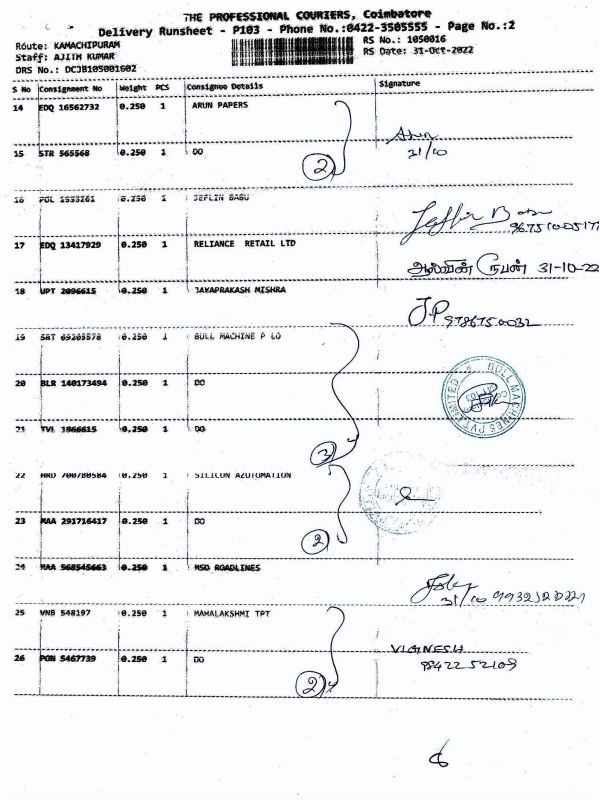 THE PROFESSIONAL COURIERS, Coimbatore
Delivery Runsheet - P103 - Phone No.:0422-3505555 - Page No.:2
Route: KAMACHIPURAM
RS No.: 1050016
Staff: AJITH KUMAR
RS Date: 31-Oct-2022
DRS No.: DCJB105001602
S No Consignment No Weight PCS Consignee Details Signature
14 EDQ 16562732 0.250 1 ARUN PAPERS
Arun
31/10
15 STR 565568 0.250 1 DO
2
16 POL 1553261 0.250 1 JEFLIN BABU
17 EDQ 13417929 0.250 1 RELIANCE RETAIL LTD
31-10-22
18 UPT 2096615 0.250 1 JAYAPRAKASH MISHRA
J.P 9786750032
19 SRT 69205578 0.250 1 BULL MACHINE P LO
20 BLR 140173494 0.250 1 DO
BULL MACHINES PVT LIMITED
21 TVL 1866615 0.250 1 DO
3
22 HRD 700780584 0.250 1 SILICON AZUTOMATION
23 MAA 291716417 0.250 1 DO
2
24 MAA 568545663 0.250 1 MSD ROADLINES
31/10
25 VNB 548197 0.250 1 MAHALAKSHMI TPT
VIGNESH
26 PON 5467739 0.250 1 DO
98422 52109
2